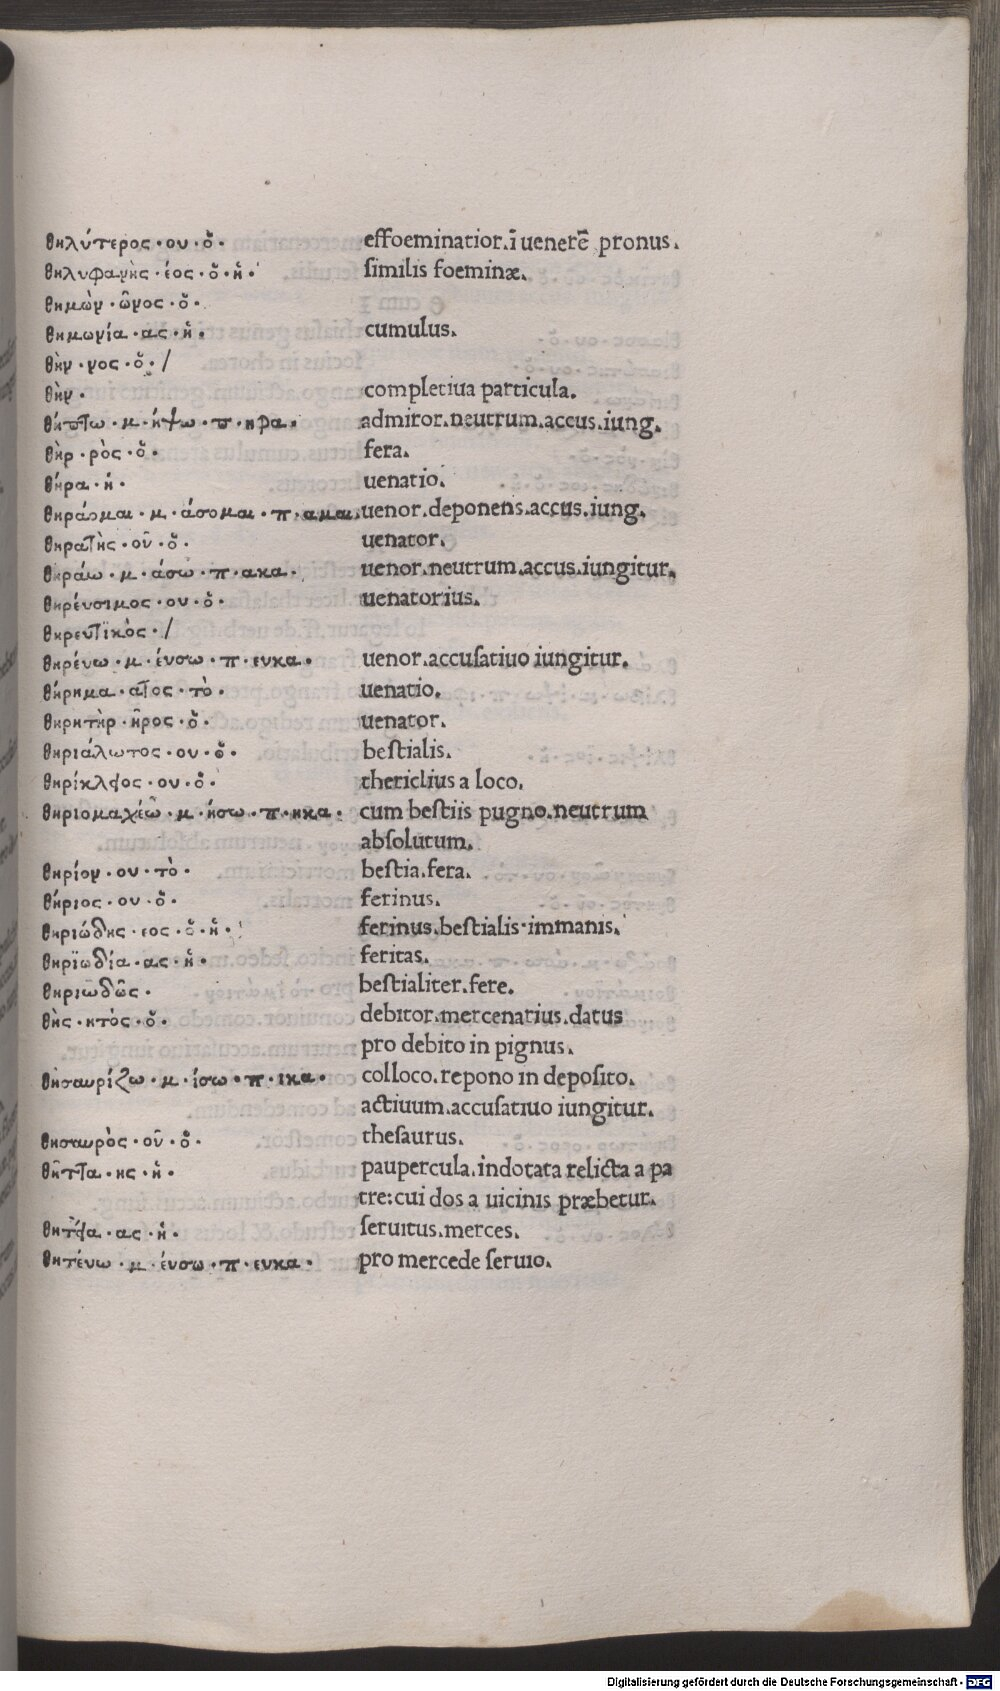 θηλύτερος · ου · ὁ · effoeminatior. ī uenerē pronus.
θηλυφανὴς · έος · ὁ · ἡ · similis foeminæ.
θημὼν · ῶνος · ὁ ·
θημωνία · ας · ἡ · cumulus.
θὴν · νος · ὁ · /
θὴν · completiua particula.
θήπτω · μ · ήψω · π · ηφα · admiror. neutrum. accus. iung.
θὴρ · ρὸς · ὁ · fera.
θήρα · ἡ · uenatio.
θηράομαι · μ · άσομαι · π · αμαι · uenor. deponens. accus. iung.
θηρατὴς · οῦ · ὁ · uenator.
θηράω · μ · άσω · π · ακα · uenor. neutrum. accus. iungitur.
θηρέυσιμος · ου · ὁ · uenatorius.
θηρευτικὸς · /
θηρέυω · μ · έυσω · π · ευκα · uenor. accusatiuo iungitur.
θήρημα · ατος · τὸ · uenatio.
θηρητὴρ · ῆρος · ὁ · uenator.
θηριάλωτος · ου · ὁ · bestialis.
θηρίκλειος · ου · ὁ · thericlius a loco.
θηριομαχέω · μ · ήσω · π · ηκα · cum bestiis pugno. neutrum
absolutum.
θηρίον · ου · τὸ · bestia. fera.
θήριος · ου · ὁ · ferinus.
θηριώδης · εος · ὁ · ἡ · ferinus. bestialis · immanis.
θηριωδία · ας · ἡ · feritas.
θηριωδῶς · bestialiter. fere.
θὴς · ητὸς · ὁ · debitor. mercenarius. datus
pro debito in pignus.
θησαυρίζω · μ · ίσω · π · ικα · colloco. repono in deposito.
actiuum. accusatiuo iungitur.
θησαυρὸς · οῦ · ὁ · thesaurus.
θῆττα · ης · ἡ · paupercula. indotata relicta a pa
tre: cui dos a uicinis præbetur.
θητεία · ας · ἡ · seruitus. merces.
θητέυω · μ · έυσω · π · ευκα · pro mercede seruio.
Digitalisierung gefördert durch die Deutsche Forschungsgemeinschaft - DFG